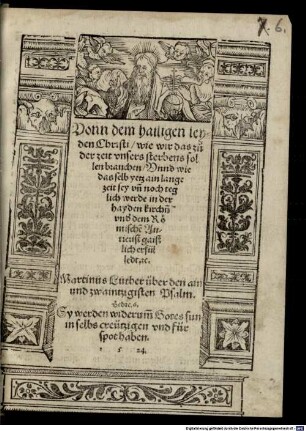 6.
Vonn dem hailigen ley-
den Christi / wie wir das zů
der zeit vnsers sterbens sol
len brauchen / Vnnd wie
das selb yetz ain lange
zeit sey vñ noch teg
lich werde in der
hayden kirchñ
vnd dem Rö
mische
geist
lich erfül
ledt.ꝛc.
Martinus Luther über den ain
und zwaintzigisten Psalm.
Hebre. 6.
Sy werden widerum̃ Gotes sun
in selbs creützigen vnd für
spot haben.
1 5 24.